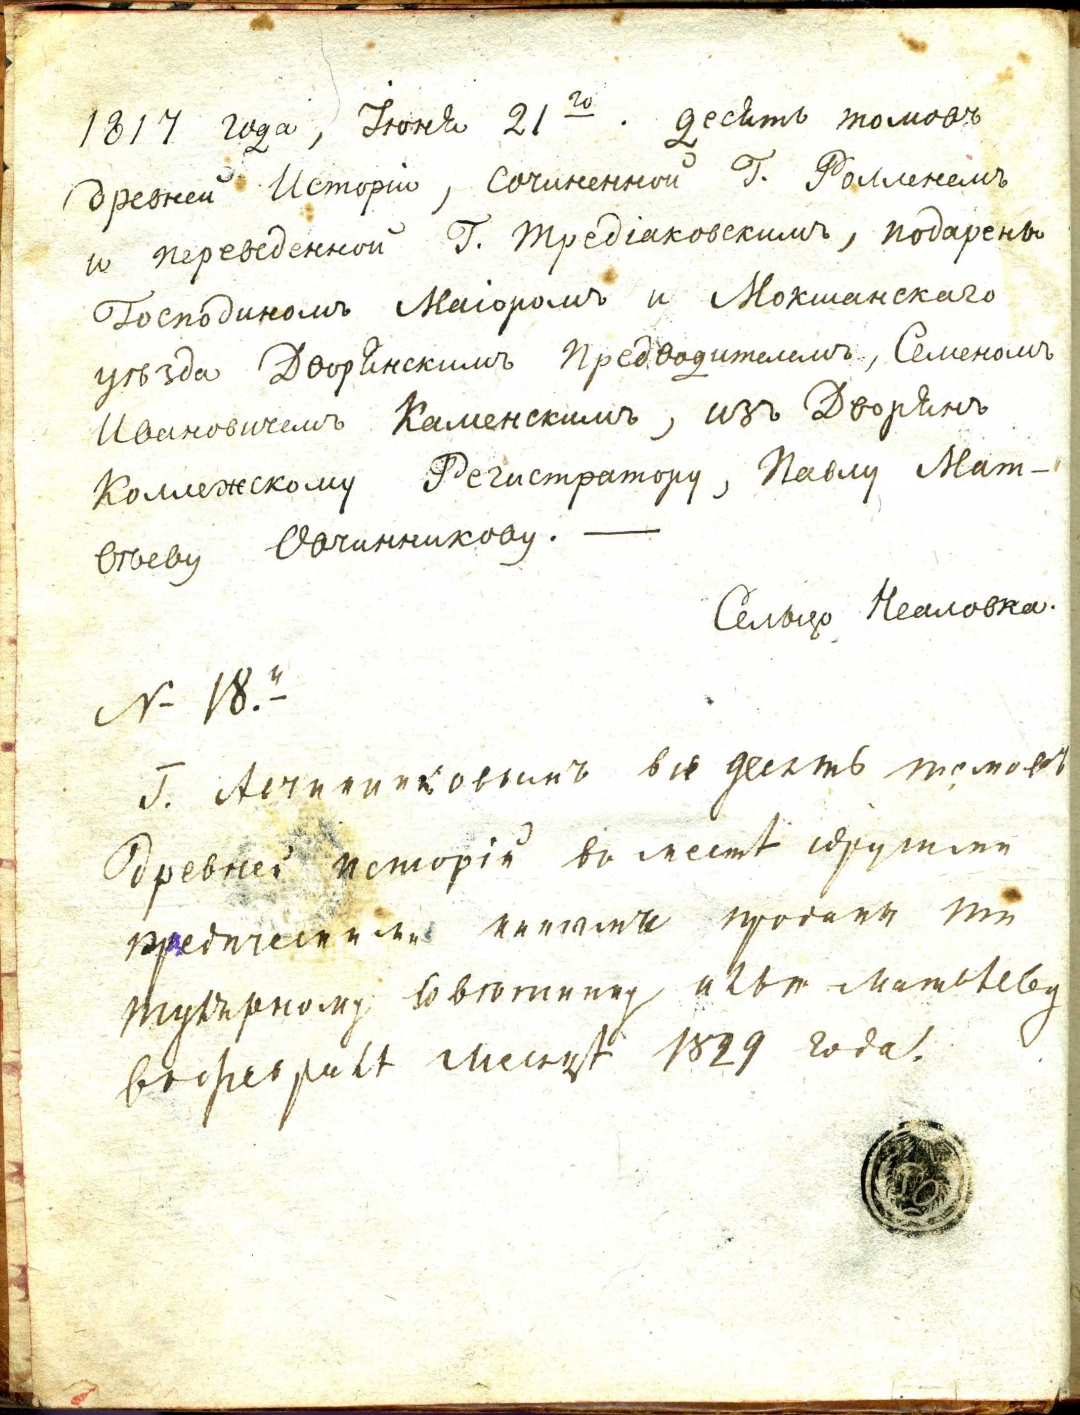 1817 года, Іюня 21го. десять томовъ
древней Исторіи, сочиненной Г. Ролленемъ
и переведенной Г. Тредіаковскимъ, подарены
Господиномъ Маіоромъ и Мокшанскаго
уѣзда Дворянскимъ Предводителемъ, Семеномъ
Ивановичемъ Каменскимъ, изъ Дворянъ
Коллежскому Регистратору, Павлу Мат-
вѣеву Овчинникову. —
Сельцо Неаловка.
№ 18.й
Г. Авчинниковымъ все десять томовъ
Древней исторіи вместѣ
проданы ти
тулярному Советнику Матвѣеву
въ февралѣ месяцѣ 1829 года.